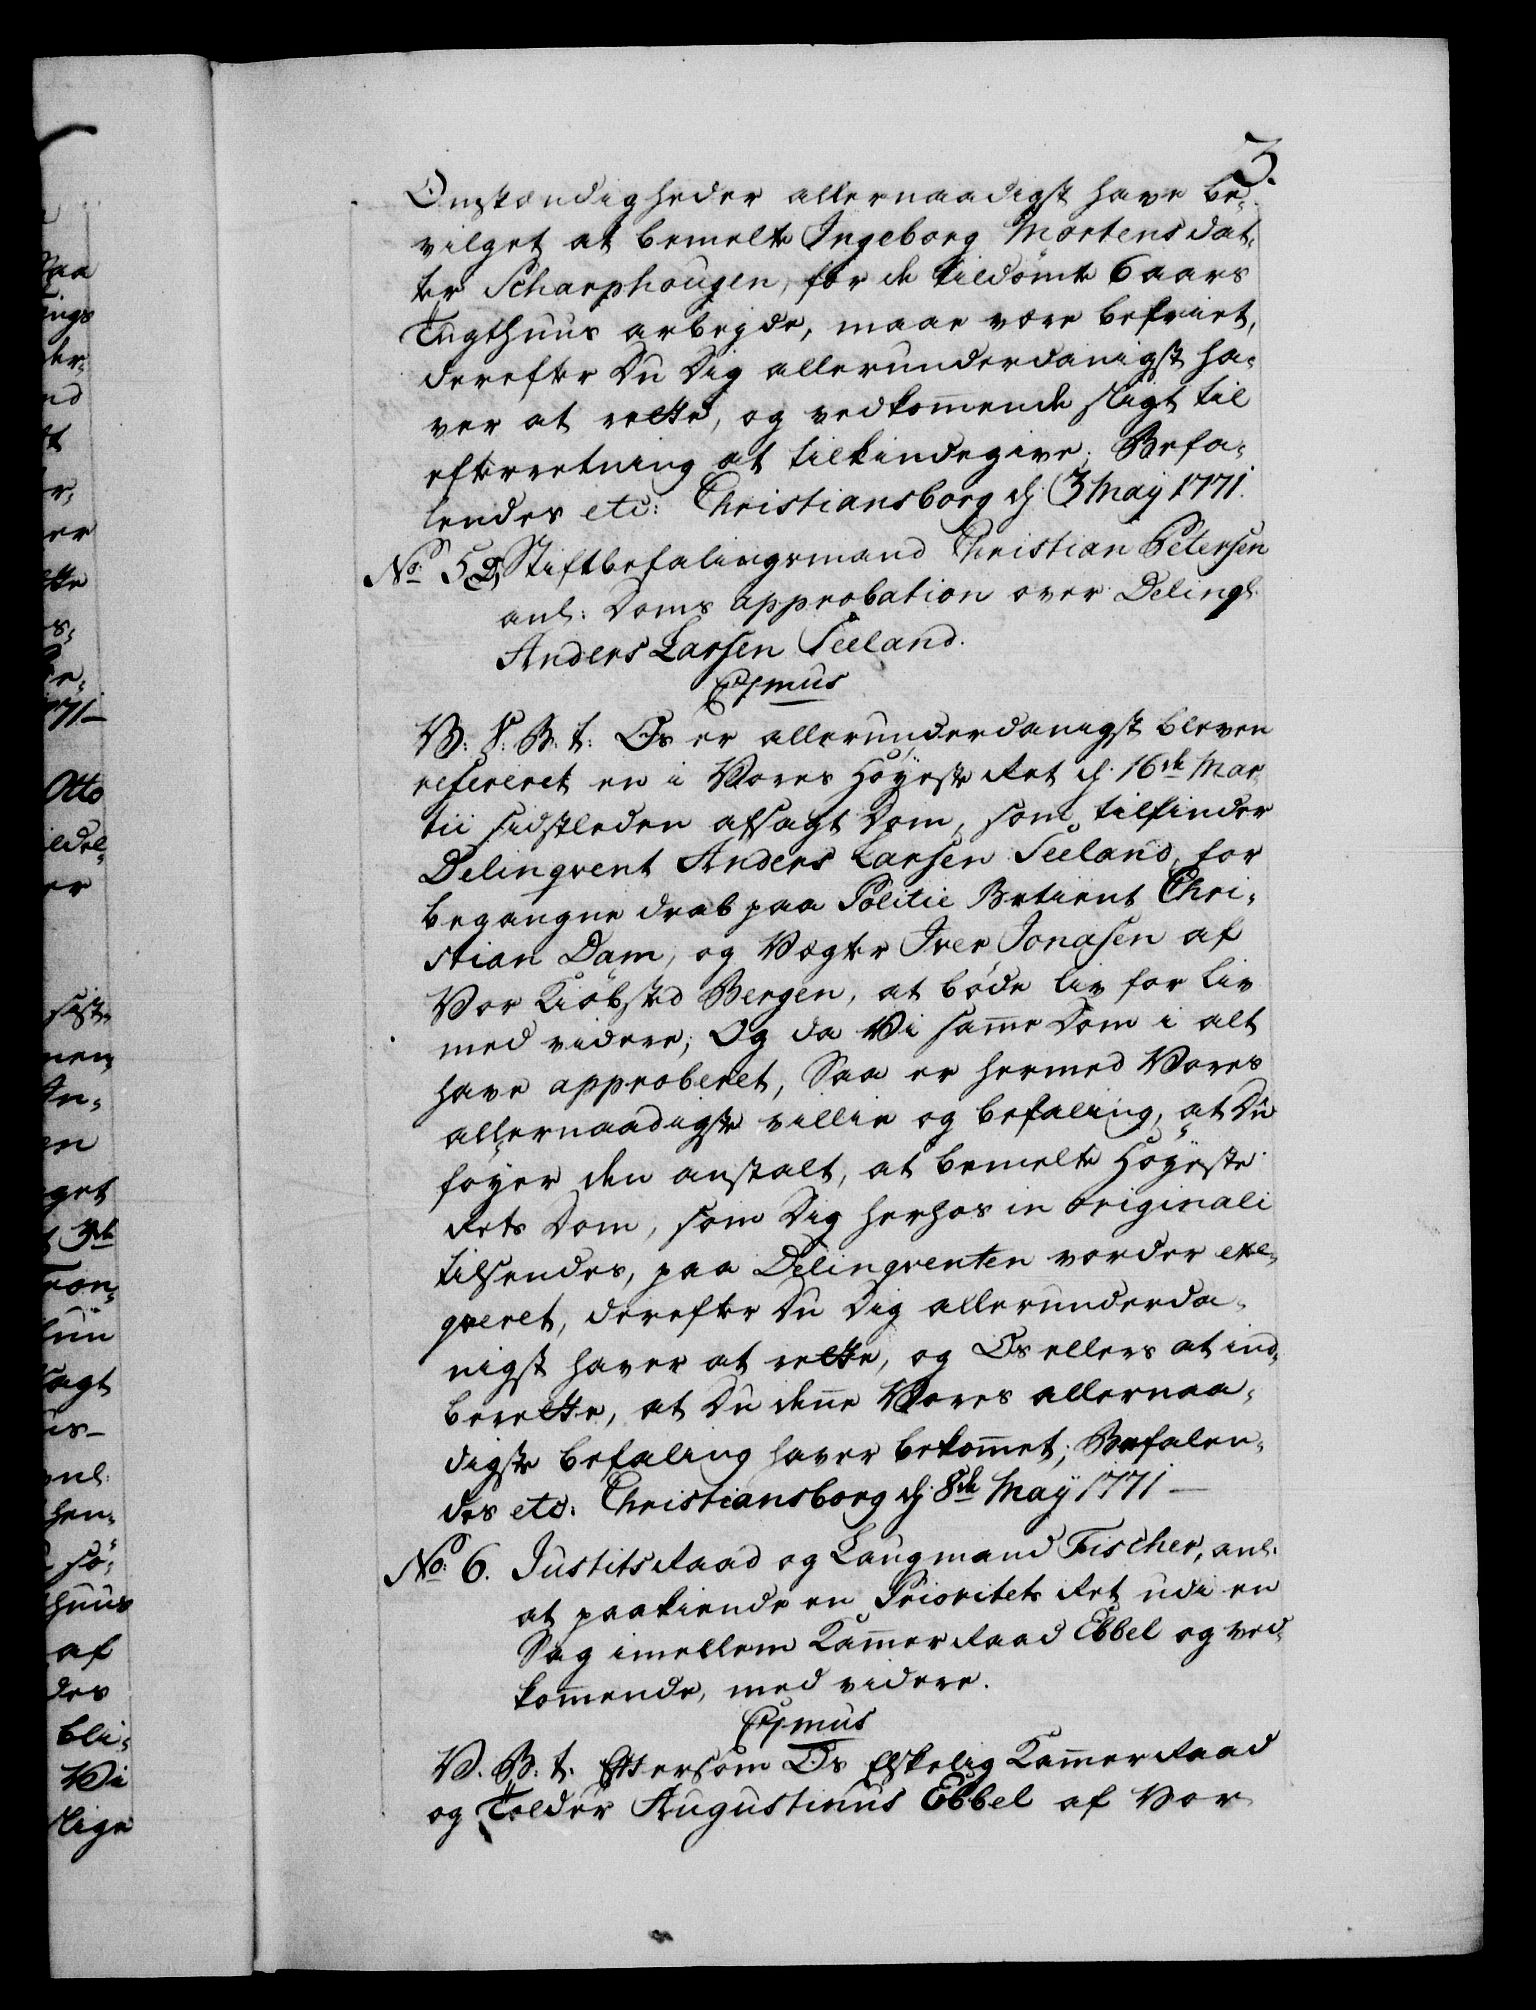 3.
Omstændigheder allernaadigst have be-
vilget at bemelte Ingeborg Mortensdat-
ter Scharphougen, for de tildömte 6 aars
Tugthuus arbejde, maae være befriet,
derefter Du Dig allerunderdanigst ha-
ver at rette, og vedkom̄ende sligt til
efterretning at tilkindegive; Befa-
lendes etc: Christiansborg d: 3 Maÿ 1771.
No: 5 Stiftbefalingsmand Christian Petersen
anl: Doms approbation over Delinqt:
Anders Larsen Seeland.
C7mus
V: S: B: t: Os er allerunderdanigst bleven
refereret en i Vores Höyeste Ret d: 16de Mar-
tii sidstleden afsagt Dom, som tilfinder
Delinqvent Anders Larsen Seeland, for
begangne drab paa Politie Betient Chri-
stian Dam, og Vægter Iver Jonasen af
Vor Kiöbsted Bergen, at böde liv for liv
med videre; Og da Vi sam̄e Dom i alt
have approberet, Saa er hermed Vores
allernaadigste villie og befaling, at Du
föyer den anstalt, at bemelte Höyeste
Rets Dom, som Dig herhos in originali
tilsendes, paa Delinqventen vorder exe-
qveret, derefter Du Dig allerunderda-
nigst haver at rette, og Os ellers at ind-
berette, at Du den̄e Vores allernaa-
digste befaling haver bekom̄et; Befalen-
des etc: Christiansborg d: 8de Maÿ 1771 —
No: 6. Justits Raad og Laugmand Fischer, anl:
at paakiende en Prioritets Ret udi en
Sag imellem Kam̄er Raad Ebbel og ved-
kom̄ende, med videre.
C7mus
V. B: t. Eftersom Os Elskelig Kam̄er Raad
og Tolder Augustinus Ebbel af Vor